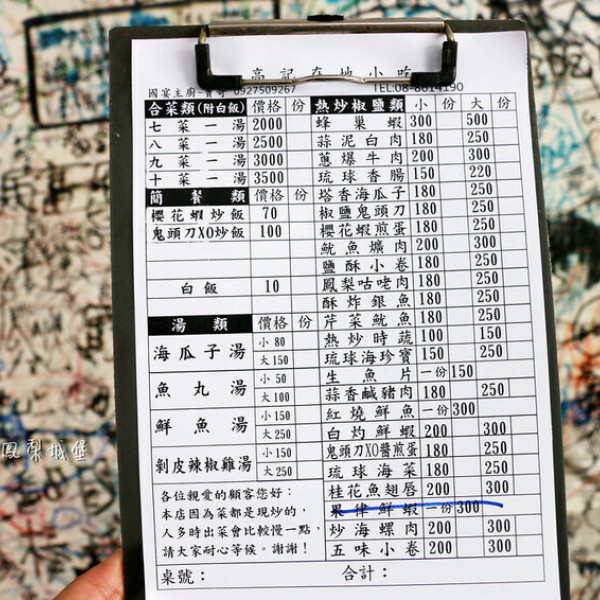 高記在地小吃
國宴主廚 0927509267 TEL:08-8614190
合菜類(附白飯) 價格 份
七菜一湯 2000
八菜一湯 2500
九菜一湯 3000
十菜一湯 3500
簡餐類 價格 份
櫻花蝦炒飯 70
鬼頭刀XO炒飯 100
白飯 10
湯類 價格 份
海瓜子湯 小80 大150
魚丸湯 小50 大100
鮮魚湯 小150 大250
剝皮辣椒雞湯 小150 大250
各位親愛的顧客您好:
本店因為菜都是現炒的,
人多時出菜會比較慢一點,
請大家耐心等候。謝謝!
熱炒椒鹽類 小 份 大 份
蜂巢蝦 300 500
蒜泥白肉 180 250
蔥爆牛肉 200 300
琉球香腸 150 220
塔香海瓜子 180 250
椒鹽鬼頭刀 180 250
櫻花蝦煎蛋 180 250
魷魚爌肉 200 300
鹽酥小卷 180 250
鳳梨咕咾肉 180 250
酥炸銀魚 180 250
芹菜魷魚 180 250
熱炒時蔬 100 150
琉球海珍寶 150 250
生魚片 一份150
蒜香鹹豬肉 180 250
紅燒鮮魚 一份300
白灼鮮蝦 200 300
鬼頭刀XO醬煎蛋 180 250
琉球海菜 180 250
桂花魚翅唇 200 300
果律鮮蝦 一份300
炒海螺肉 200 300
五味小卷 200 300
桌號: 合計:
鳳梨城堡